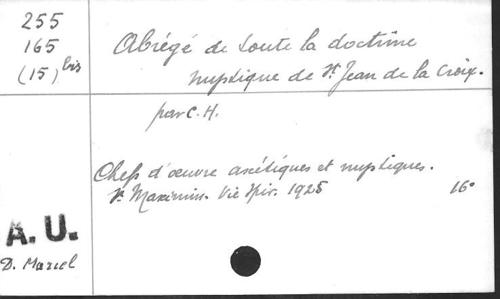 255
165
(15) bis
Abrégé de toute la doctrine
mystique de St Jean de la Croix.
par C. H.
Chefs d'œuvre ascétiques et mystiques.
St Maximin. Vie Spir. 1925 16°
A. U.
D. Marcel